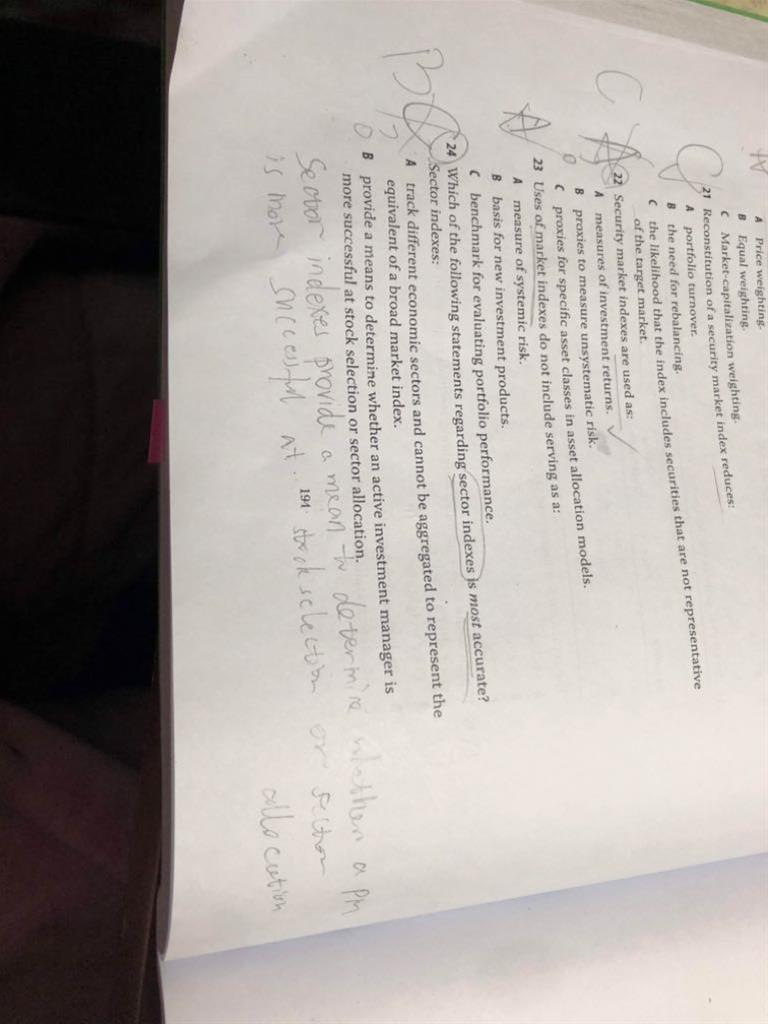 A Price weighting.
B Equal weighting.
C Market-capitalization weighting.
C
21 Reconstitution of a security market index reduces:
A portfolio turnover.
B the need for rebalancing.
C the likelihood that the index includes securities that are not representative
of the target market.
C
22 Security market indexes are used as:
A measures of investment returns.
B proxies to measure unsystematic risk.
C proxies for specific asset classes in asset allocation models.
A
23 Uses of market indexes do not include serving as a:
A measure of systemic risk.
B basis for new investment products.
C benchmark for evaluating portfolio performance.
B
24 Which of the following statements regarding sector indexes is most accurate?
Sector indexes:
A track different economic sectors and cannot be aggregated to represent the
equivalent of a broad market index.
B provide a means to determine whether an active investment manager is
more successful at stock selection or sector allocation.
191
Sector indexes provide a mean to determine whether a PM
is more successful at stock selection or sector
allocation